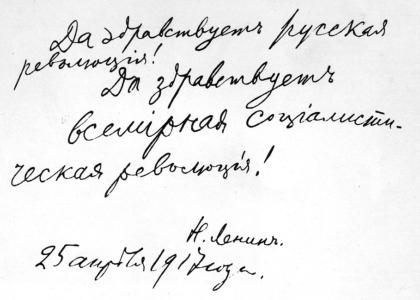 Да здравствуетъ русская
революція!
Да здравствуетъ
всемірная соціалисти-
ческая революція!
Н. Ленинъ.
25 апрѣля 1917 года.